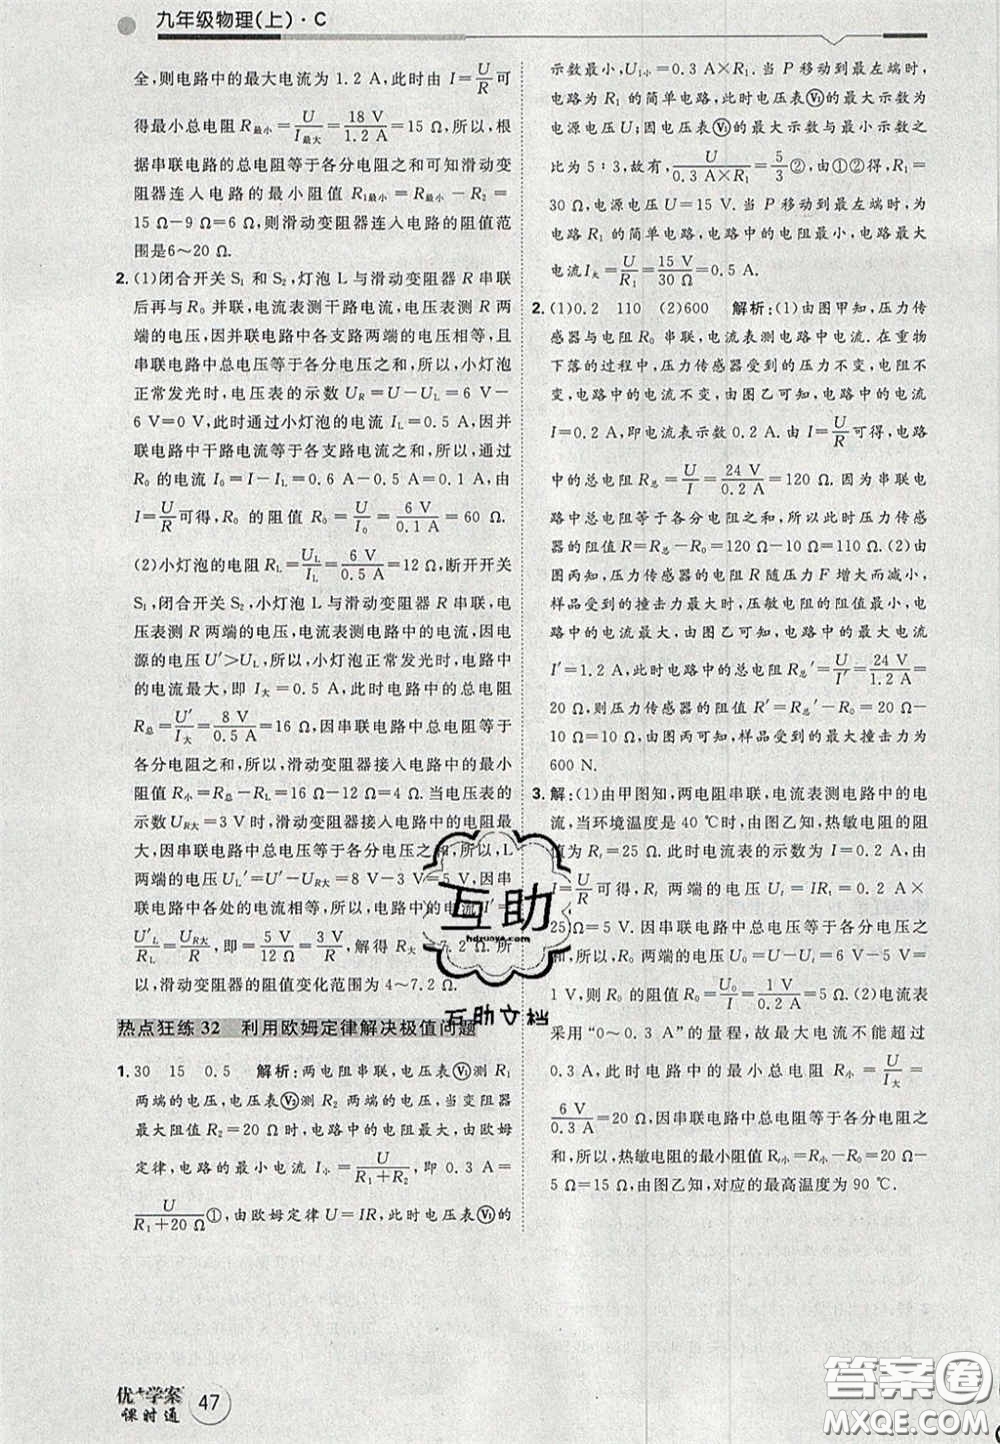 九年级物理(上)·C
全,则电路中的最大电流为 1.2 A,此时由 I=U/R可
得最小总电阻 R最小=U/I最大=18 V/1.2 A=15 Ω,所以,根
据串联电路的总电阻等于各分电阻之和可知滑动变
阻器连入电路的最小阻值 R1最小=R最小-R2=
15 Ω-9 Ω=6 Ω,则滑动变阻器连入电路的阻值范
围是6~20 Ω.
2.(1)闭合开关 S1 和 S2,灯泡 L 与滑动变阻器 R 串联
后再与 R0 并联,电流表测干路电流,电压表测 R 两
端的电压,因并联电路中各支路两端的电压相等,且
串联电路中总电压等于各分电压之和,所以,小灯泡
正常发光时,电压表的示数 UR=U-UL=6 V-
6 V=0 V,此时通过小灯泡的电流 IL=0.5 A,因并
联电路中干路电流等于各支路电流之和,所以,通过
R0 的电流 I0=I-IL=0.6 A-0.5 A=0.1 A,由 I=
U/R可得,R0 的阻值 R0=U/I0=6 V/0.1 A=60 Ω.
(2)小灯泡的电阻 RL=UL/IL=6 V/0.5 A=12 Ω,断开开关
S1,闭合开关 S2,小灯泡 L 与滑动变阻器 R 串联,电
压表测 R 两端的电压,电流表测电路中的电流,因电
源的电压 U′>UL,所以,小灯泡正常发光时,电路中
的电流最大,即 I大=0.5 A,此时电路中的总电阻
R总=U′/I大=8 V/0.5 A=16 Ω,因串联电路中总电阻等于
各分电阻之和,所以,滑动变阻器接入电路中的最小
阻值 R小=R总-RL=16 Ω-12 Ω=4 Ω.当电压表的
示数 UR大=3 V时,滑动变阻器接入电路中的电阻最
大,因串联电路中总电压等于各分电压之和,所以,L
两端的电压 UL′=U′-UR大=8 V-3 V=5 V,因串
联电路中各处的电流相等,所以,电路中的电流 I′=
U′L/RL=UR大/R大,即=5 V/12 Ω=3 V/R大,解得 R大=7.2 Ω.所
以,滑动变阻器的阻值变化范围为 4~7.2 Ω.
热点狂练 32 利用欧姆定律解决极值问题
1.30 15 0.5 解析:两电阻串联,电压表V1测 R1
两端的电压,电压表V2测 R2 两端的电压,当变阻器
最大阻值 R2=20 Ω时,电路中的电流最小,由欧姆
定律,电路的最小电流 I小=U/(R1+R2),即 0.3 A=
U/(R1+20 Ω)①,由欧姆定律 U=IR,此时电压表V1的
示数最小,U1小=0.3 A×R1.当 P 移动到最左端时,
电路为 R1 的简单电路,此时电压表V1的最大示数为
电源电压 U;因电压表V1的最大示数与最小示数之
比为 5∶3,故有,U/(0.3 A×R1)=5/3②,由①②得,R1=
30 Ω,电源电压 U=15 V.当 P 移动到最左端时,为
电阻 R1 的简单电路,电路中的电阻最小,电路最大
电流I大=U/R1=15 V/30 Ω=0.5 A.
2.(1)0.2 110 (2)600 解析:(1)由图甲知,压力传
感器与 R0 串联,电流表测电路中的电流.在重物
下落的过程中,压力传感器受到的压力不变,电阻不
变,电路中的电流不变,由图乙可知,电路中的电流
I=0.2 A,即电流表示数0.2 A.由 I=U/R可得,电路
中的总电阻 R总=U/I=24 V/0.2 A=120 Ω.因为串联电
路中总电阻等于各分电阻之和,所以此时压力传感
器的阻值 R=R总-R0=120 Ω-10 Ω=110 Ω.(2)由
图丙知,压力传感器的电阻 R 随压力 F 增大而减小,
样品受到的撞击力最大时,压敏电阻的阻值最小,电
路中的电流最大,由图乙可知,电路中的最大电流
I′=1.2 A,此时电路中的总电阻 R总′=U/I′=24 V/1.2 A=
20 Ω,则压力传感器的阻值 R′=R总′-R0=20 Ω-
10 Ω=10 Ω.由图丙可知,样品受到的最大撞击力为
600 N.
3.解:(1)由甲图知,两电阻串联,电流表测电路中的电
流,当环境温度是 40 ℃时,由图乙知,热敏电阻的阻
值为 Rt=25 Ω.此时电流表的示数为 I=0.2 A,由
I=U/R可得,Rt 两端的电压 Ut=IRt=0.2 A×
25 Ω=5 V.因串联电路中总电压等于各分电压之
R0=U0/I=1 V/0.2 A=5 Ω.(2)电流表
采用“0~0.3 A”的量程,故最大电流不能超过
0.3 A,此时电路中的最小总电阻 R小=U/I大=
6 V/0.3 A=20 Ω,因串联电路中总电阻等于各分电阻之
和,所以,热敏电阻的最小阻值 Rt小=R小-R0=20 Ω
-5 Ω=15 Ω,由图乙知,对应的最高温度为 90 ℃.
互助
hdzuoye.com
互助文档
优+学案
课时通
47
答案圈
MXQE.COM